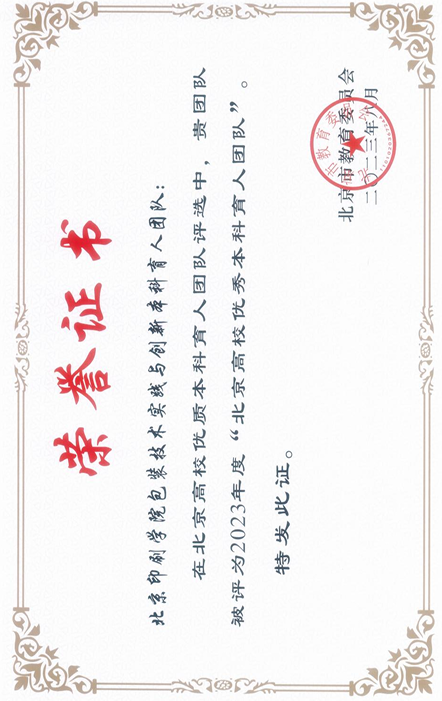 荣誉证书
北京印刷学院包装技术实践与创新本科育人团队：
在北京高校优质本科育人团队评选中，贵团队
被评为2023年度“北京高校优秀本科育人团队”。
特发此证。
北京市教育委员会
二〇二三年八月